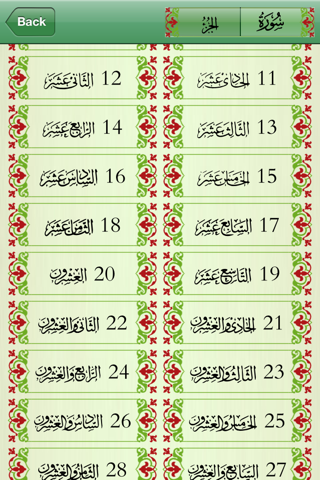 Back الجزء سُورَة
11 الحادي عشر 12 الثاني عشر
13 الثالث عشر 14 الرابع عشر
15 الخامس عشر 16 السادس عشر
17 السابع عشر 18 الثامن عشر
19 التاسع عشر 20 العشرون
21 الحادي والعشرون 22 الثاني والعشرون
23 الثالث والعشرون 24 الرابع والعشرون
25 الخامس والعشرون 26 السادس والعشرون
27 السابع والعشرون 28 الثامن والعشرون